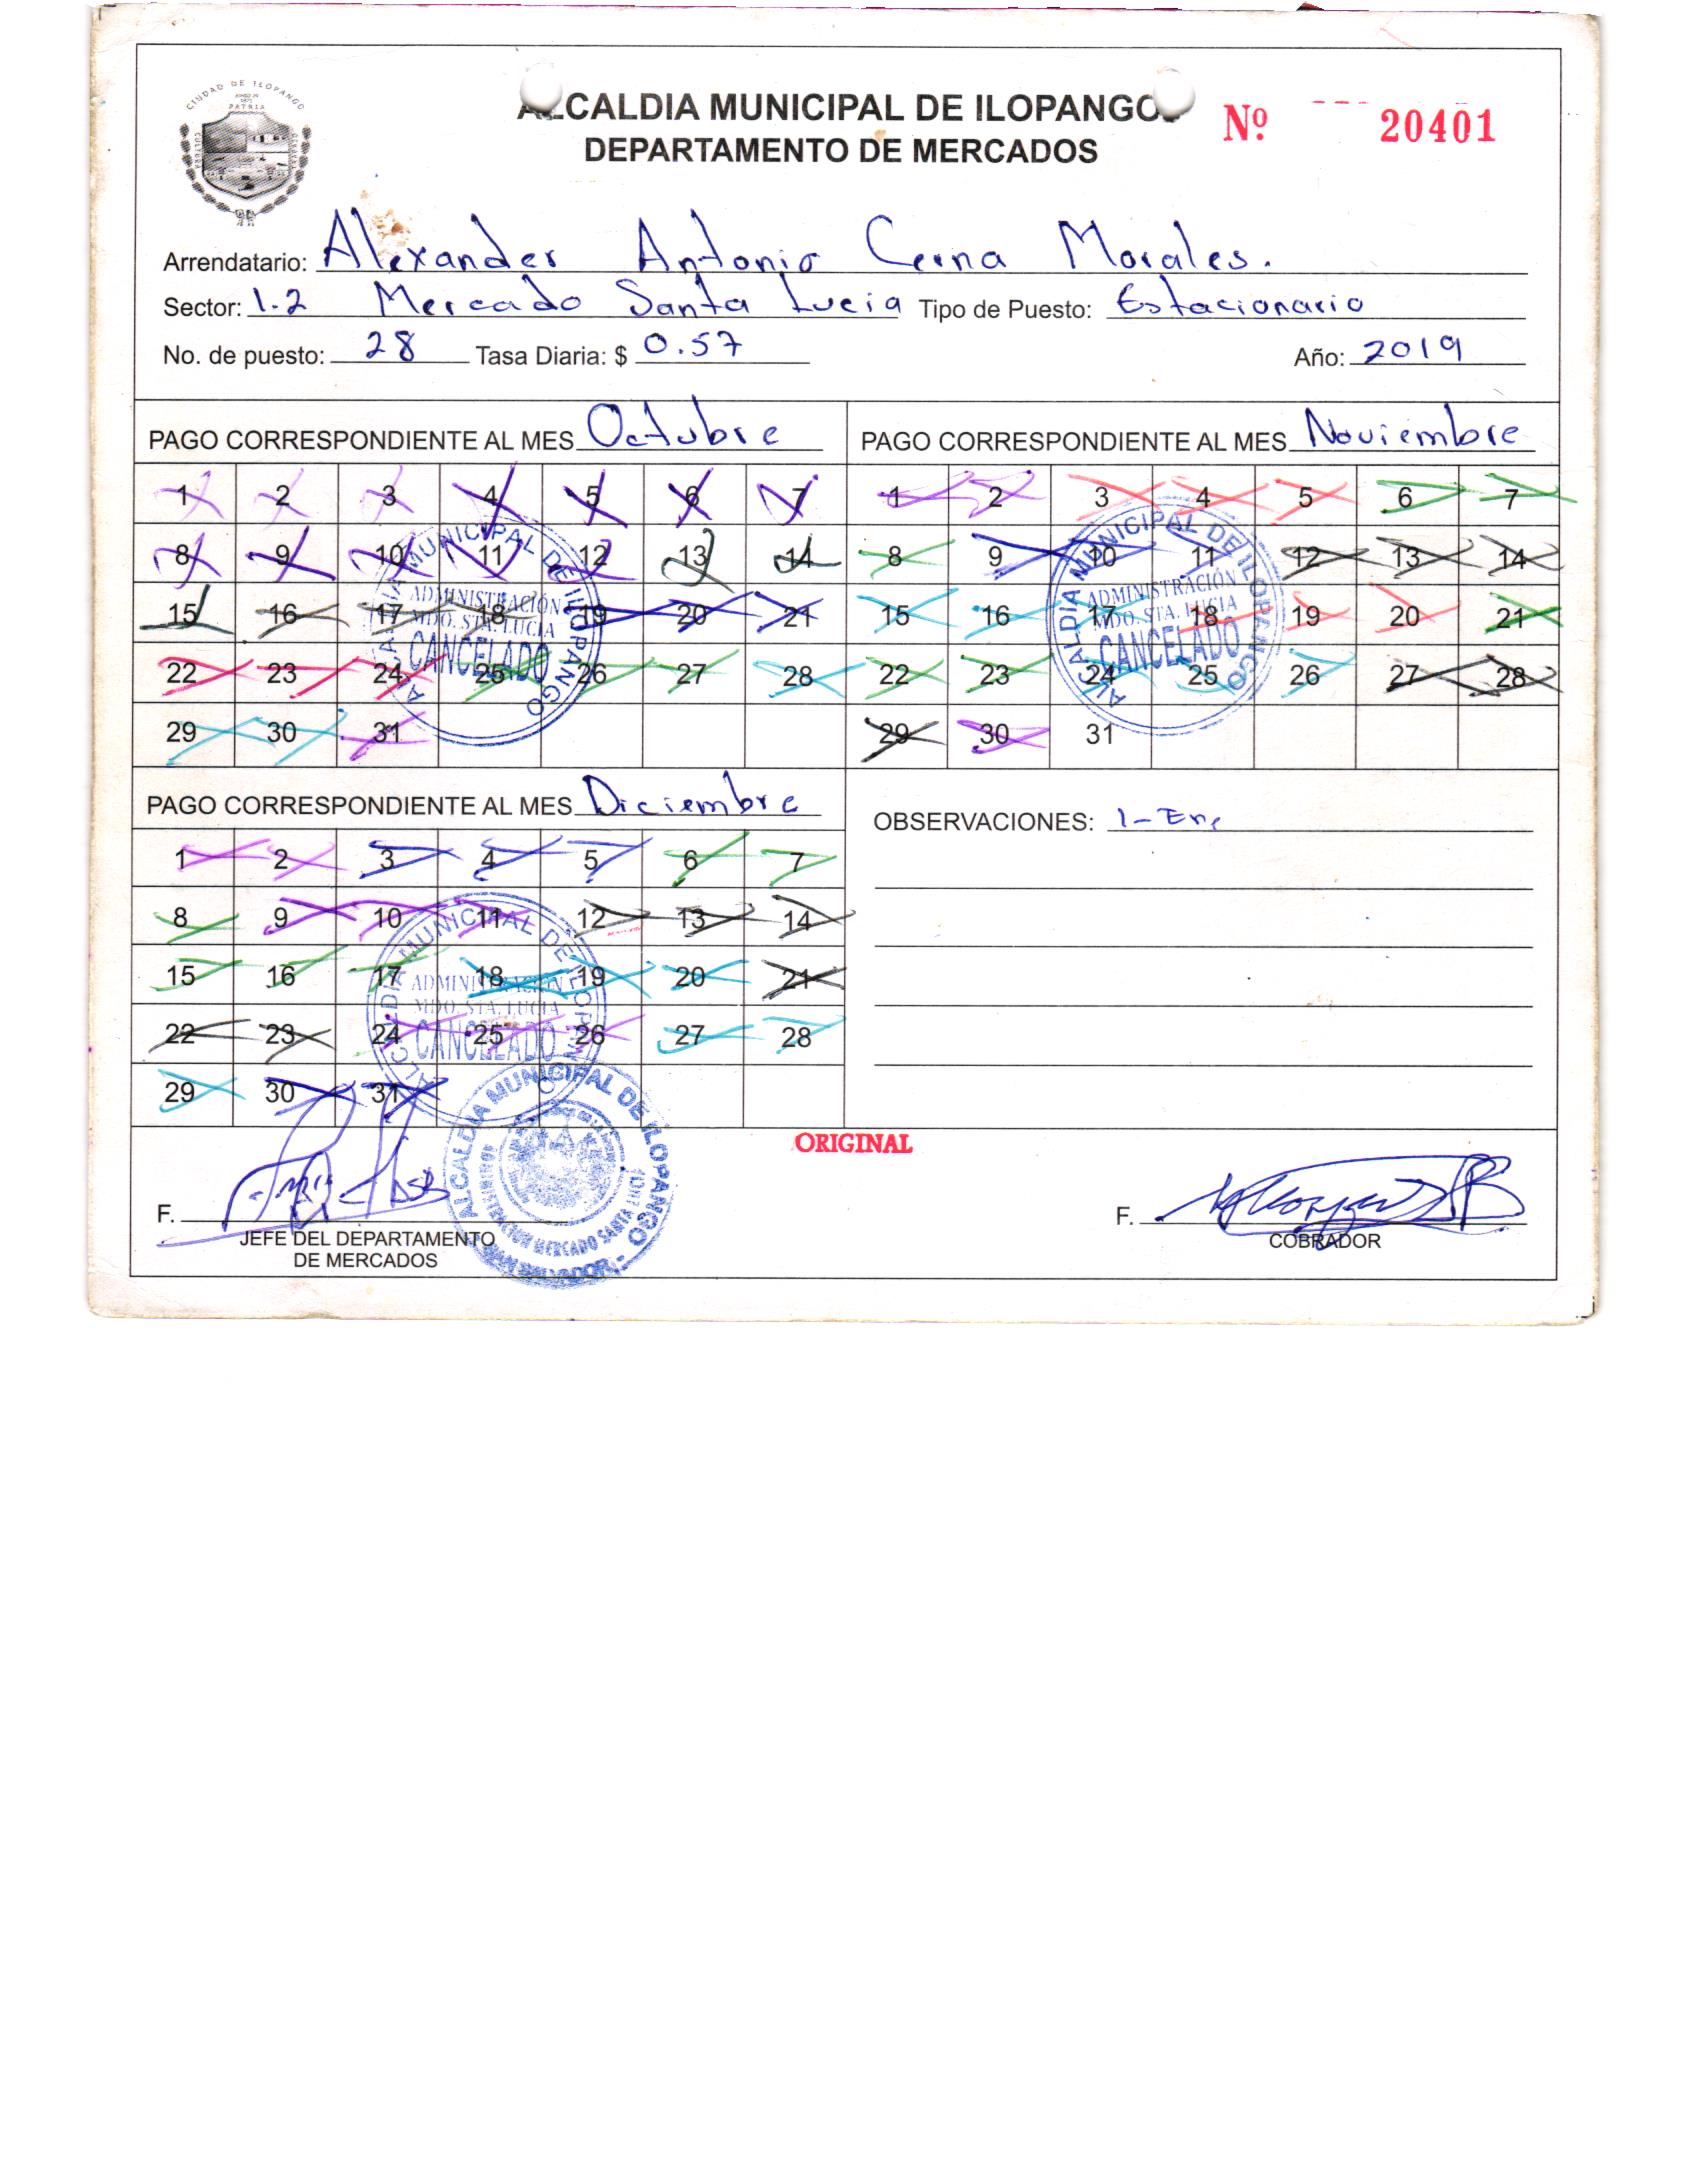 CIUDAD DE ILOPANGO
PATRIA
CULTURA
ALCALDIA MUNICIPAL DE ILOPANGO
DEPARTAMENTO DE MERCADOS
Nº 20401
Arrendatario: Alexander Antonio Cerna Morales.
Sector: 1-2 Mercado Santa Lucia Tipo de Puesto: Estacionario
No. de puesto: 28 Tasa Diaria: $ 0.57 Año: 2019
PAGO CORRESPONDIENTE AL MES Octubre
1 2 3 4 5 6 7
8 9 10 11 12 13 14
15 16 17 18 19 20 21
22 23 24 25 26 27 28
29 30 31
ALCALDIA MUNICIPAL DE ILOPANGO
ADMINISTRACIÓN
MDO. STA. LUCIA
CANCELADO
PAGO CORRESPONDIENTE AL MES Noviembre
1 2 3 4 5 6 7
8 9 10 11 12 13 14
15 16 17 18 19 20 21
22 23 24 25 26 27 28
29 30 31
ALCALDIA MUNICIPAL DE ILOPANGO
ADMINISTRACIÓN
MDO. STA. LUCIA
CANCELADO
PAGO CORRESPONDIENTE AL MES Diciembre
1 2 3 4 5 6 7
8 9 10 11 12 13 14
15 16 17 18 19 20 21
22 23 24 25 26 27 28
29 30 31
ALCALDIA MUNICIPAL DE ILOPANGO
ADMINISTRACIÓN
MDO. STA. LUCIA
CANCELADO
OBSERVACIONES: 1-Ene
ORIGINAL
ALCALDIA MUNICIPAL DE ILOPANGO
ADMINISTRACION MERCADO SANTA LUCIA
SAN SALVADOR
F.
JEFE DEL DEPARTAMENTO
DE MERCADOS
F.
COBRADOR